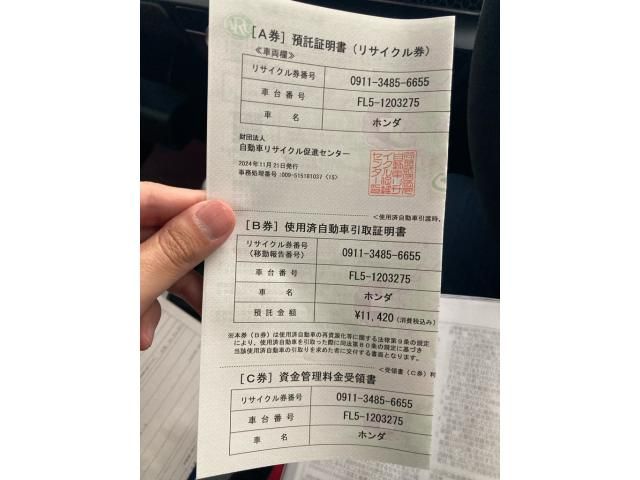 [A券] 預託証明書 (リサイクル券)
≪車両欄≫
リサイクル券番号 0911-3485-6655
車台番号 FL5-1203275
車名 ホンダ
財団法人
自動車リサイクル促進センター
2024年11月21日発行
事務処理番号:009-515181037 (1S)
<使用済自動車引渡時、
[B券] 使用済自動車引取証明書
リサイクル券番号
(移動報告番号) 0911-3485-6655
車台番号 FL5-1203275
車名 ホンダ
預託金額 ¥11,420 (消費税込み)
※本券(B券)は使用済自動車の再資源化等に関する法律第9条の規定
により、使用済自動車を引取った際に同法第80条の規定に基づき
当該使用済自動車の引取りを求めた者に交付する書面となります。
<受領書(C券)利
[C券] 資金管理料金受領書
リサイクル券番号 0911-3485-6655
車台番号 FL5-1203275
車名 ホンダ